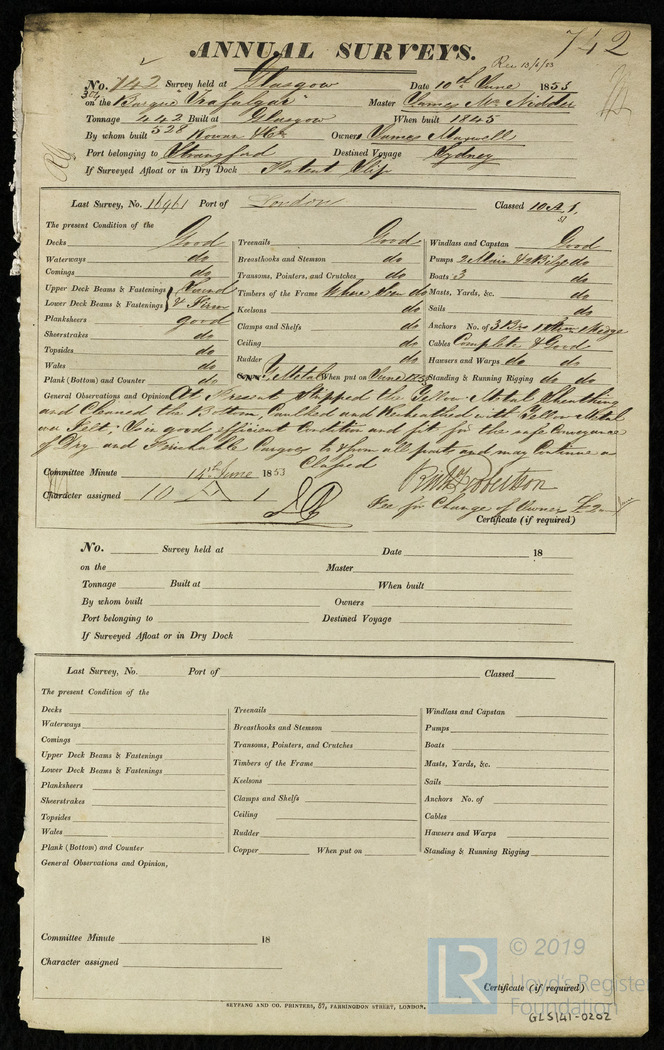 742
ANNUAL SURVEYS.
Rec 13/6/53
No. 742 Survey held at Glasgow Date 10th June 1853
on the Barque "Trafalgar" Master James Mc
Tonnage 442 Built at Glasgow When built 1845
528
By whom built Rowan & Co Owners James Maxwell
Port belonging to Strangford Destined Voyage Sydney
If Surveyed Afloat or in Dry Dock Patent Slip
Last Survey, No. 16961 Port of London Classed 10 A 1,
53
The present Condition of the
Decks Good
Waterways do
Comings do
Upper Deck Beams & Fastenings Sound
Lower Deck Beams & Fastenings & Firm
Planksheers good
Sheerstrakes do
Topsides do
Wales do
Plank (Bottom) and Counter do
Treenails Good
Breasthooks and Stemson do
Transoms, Pointers, and Crutches do
Timbers of the Frame Where Seen do
Keelsons do
Clamps and Shelfs do
Ceiling do
Rudder do
Y Metal When put on June 1853
Windlass and Capstan Good
Pumps 2 Main & 2 Bilge do
Boats 3 do
Masts, Yards, &c. do
Sails do
Anchors No. of 3 Brs 1 Kedge
Cables Complete & Good
Hawsers and Warps do do
Standing & Running Rigging do do
General Observations and Opinion, At Present Stripped the Yellow Metal Sheathing
and Cleaned the Bottom, Caulked and Resheathed with Yellow Metal
over Felt; Is in good efficient Condition and fit for the safe Conveyance
of Dry and Perishable Cargoes to & from all parts and may Continue as
Classed
Committee Minute 14th June 1853
Character assigned 10 A 1
Robertson
Fee for Change of Owners £2
Certificate (if required)
No. Survey held at Date 18
on the Master
Tonnage Built at When built
By whom built Owners
Port belonging to Destined Voyage
If Surveyed Afloat or in Dry Dock
Last Survey, No. Port of Classed
The present Condition of the
Decks
Waterways
Comings
Upper Deck Beams & Fastenings
Lower Deck Beams & Fastenings
Planksheers
Sheerstrakes
Topsides
Wales
Plank (Bottom) and Counter
Treenails
Breasthooks and Stemson
Transoms, Pointers, and Crutches
Timbers of the Frame
Keelsons
Clamps and Shelfs
Ceiling
Rudder
Copper When put on
Windlass and Capstan
Pumps
Boats
Masts, Yards, &c.
Sails
Anchors No. of
Cables
Hawsers and Warps
Standing & Running Rigging
General Observations and Opinion,
Committee Minute 18
Character assigned
Certificate (if required)
SEYFANG AND CO. PRINTERS, 57, FARRINGDON STREET, LONDON.
LR © 2019
Lloyd's Register
Foundation
GLS/41-0202